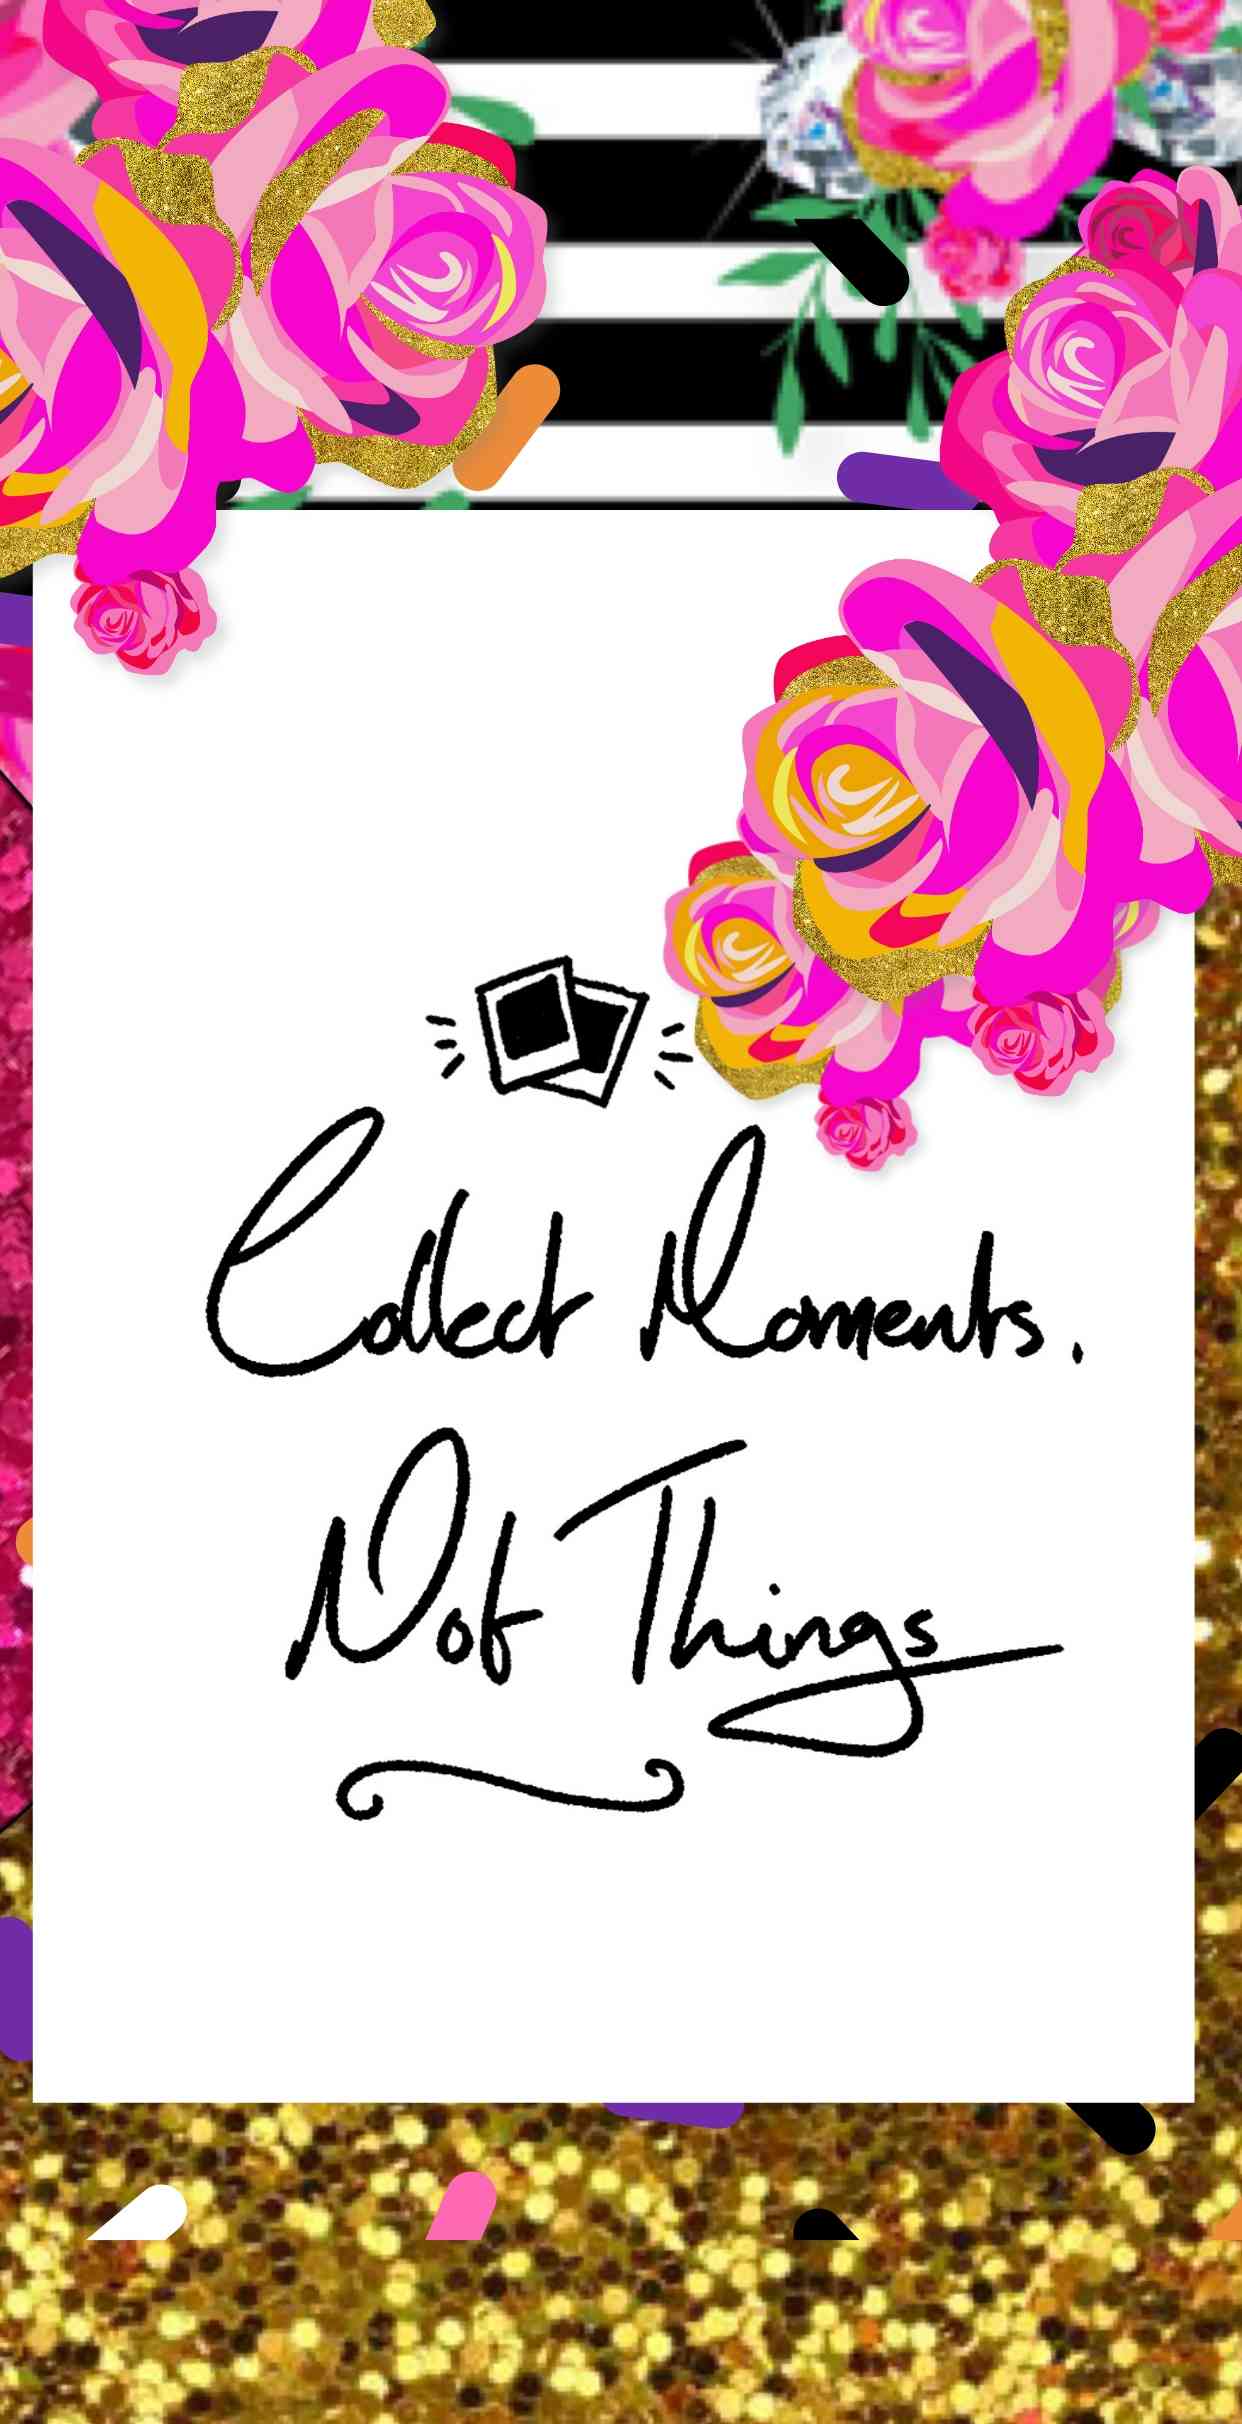 Collect Moments.
Not Things